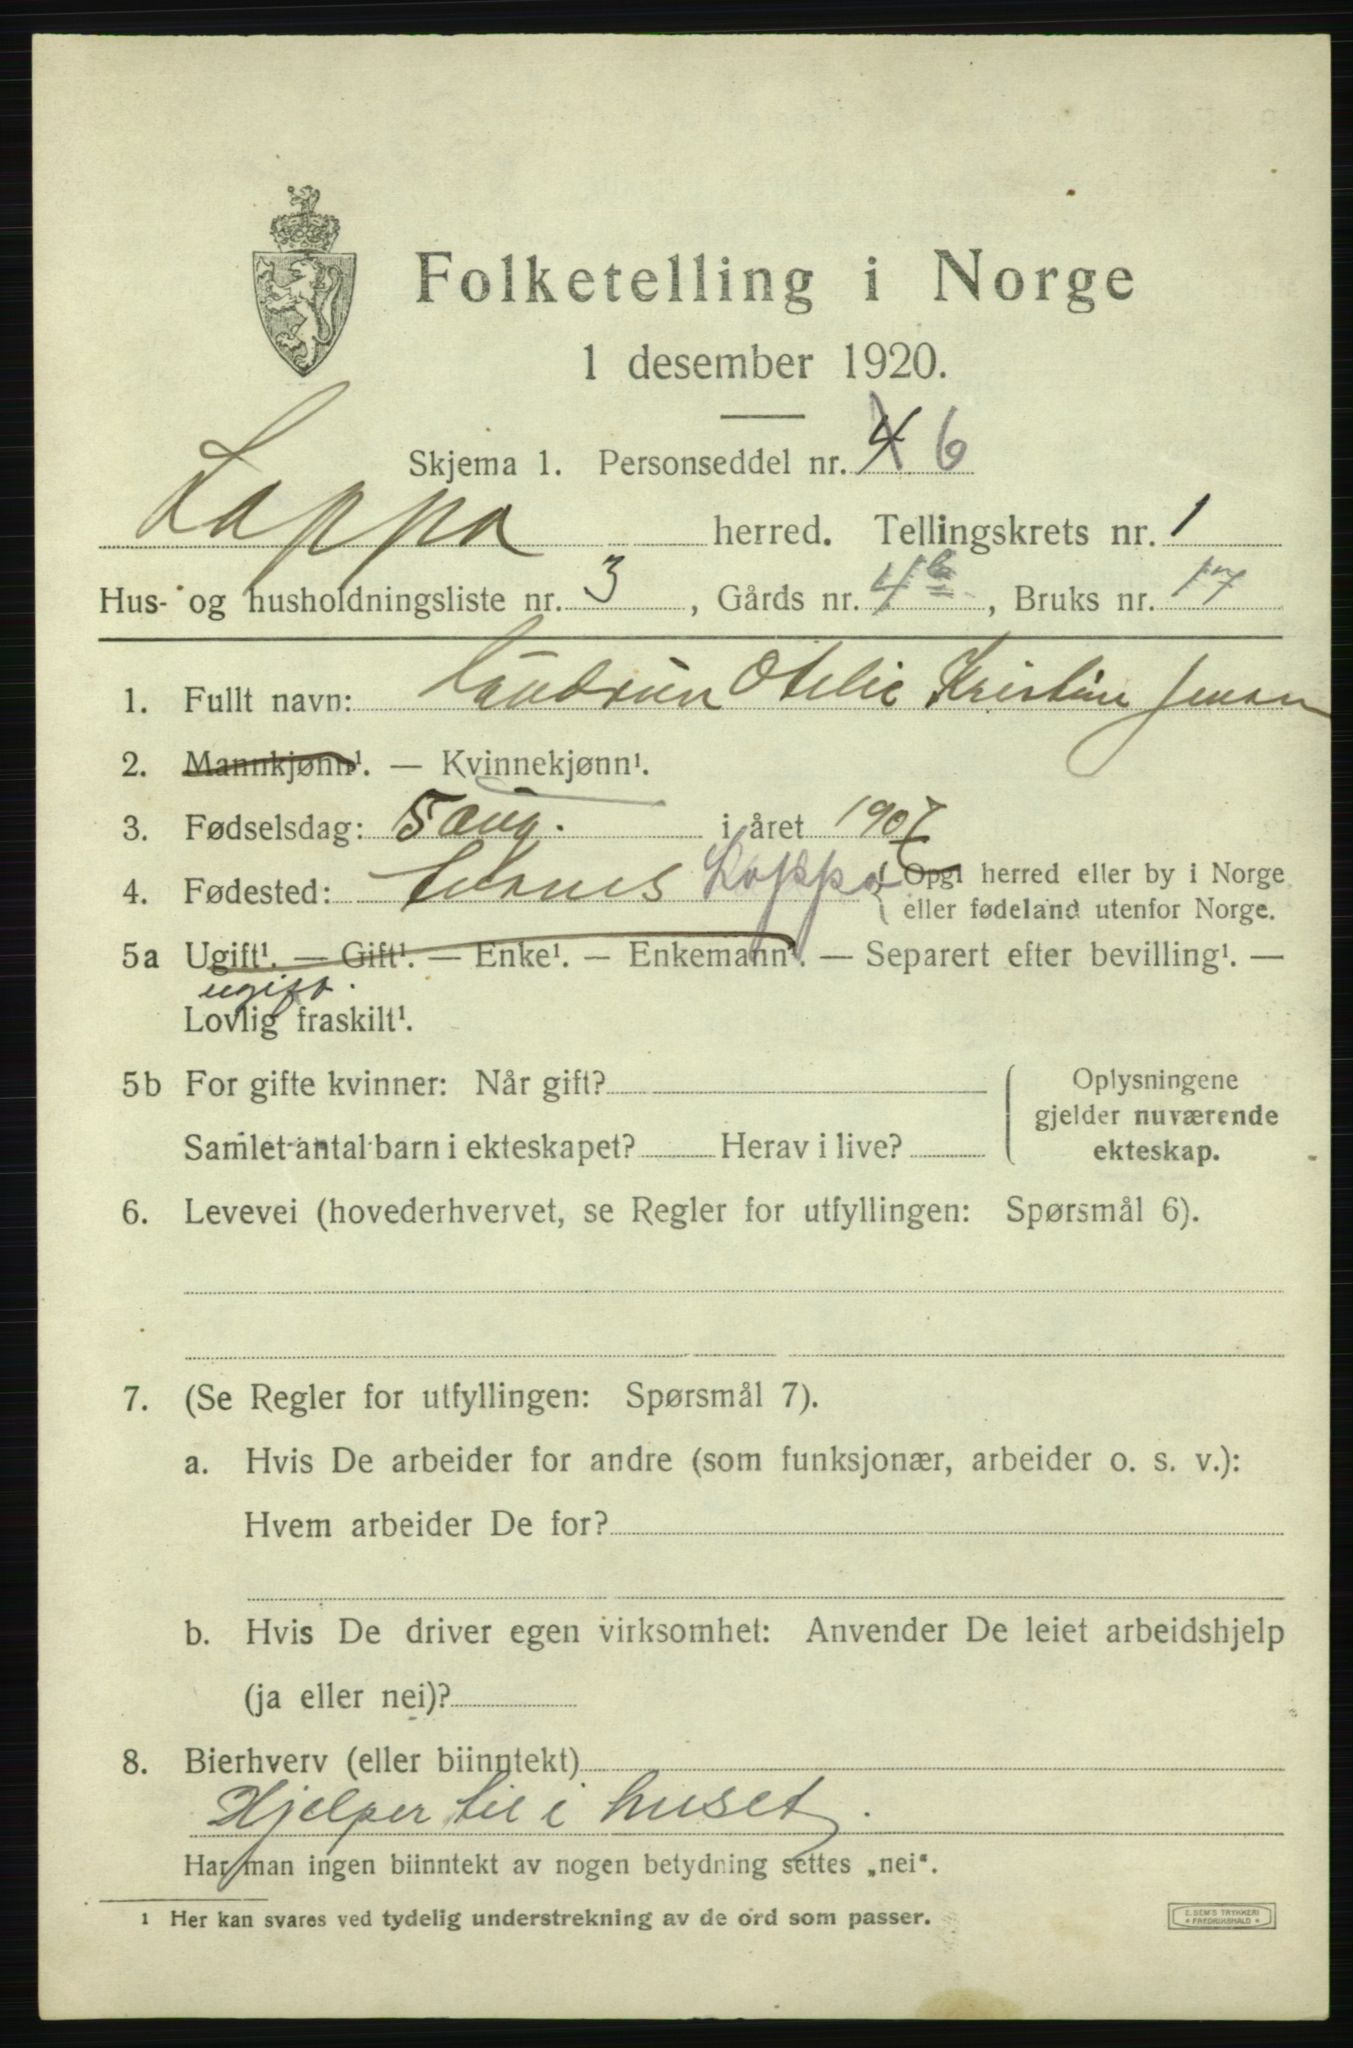 Folketelling i Norge
1 desember 1920.
Skjema 1. Personseddel nr. 4 6
Loppa herred. Tellingskrets nr. 1
Hus- og husholdningsliste nr. 3, Gårds nr. 4b, Bruks nr. 17
1. Fullt navn: Gudrun Otelie Kristine Jensen
2. Mannkjønn¹. — Kvinnekjønn¹.
3. Fødselsdag: 5 aug. i året 1907
4. Fødested: Loppa { Opgi herred eller by i Norge
eller fødeland utenfor Norge.
5a Ugift¹. — Gift¹. — Enke¹. — Enkemann¹. — Separert efter bevilling¹. —
ugift.
Lovlig fraskilt¹.
5b For gifte kvinner: Når gift? { Oplysningene
gjelder nuværende
Samlet antal barn i ekteskapet? Herav i live? ekteskap.
6. Levevei (hovederhvervet, se Regler for utfyllingen: Spørsmål 6).
7. (Se Regler for utfyllingen: Spørsmål 7).
a. Hvis De arbeider for andre (som funksjonær, arbeider o. s. v.):
Hvem arbeider De for?
b. Hvis De driver egen virksomhet: Anvender De leiet arbeidshjelp
(ja eller nei)?
8. Bierhverv (eller biinntekt)
Hjelper til i huset.
Har man ingen biinntekt av nogen betydning settes „nei“.
¹ Her kan svares ved tydelig understrekning av de ord som passer.
E. SEM'S TRYKKERI
* FREDRIKSHALD *